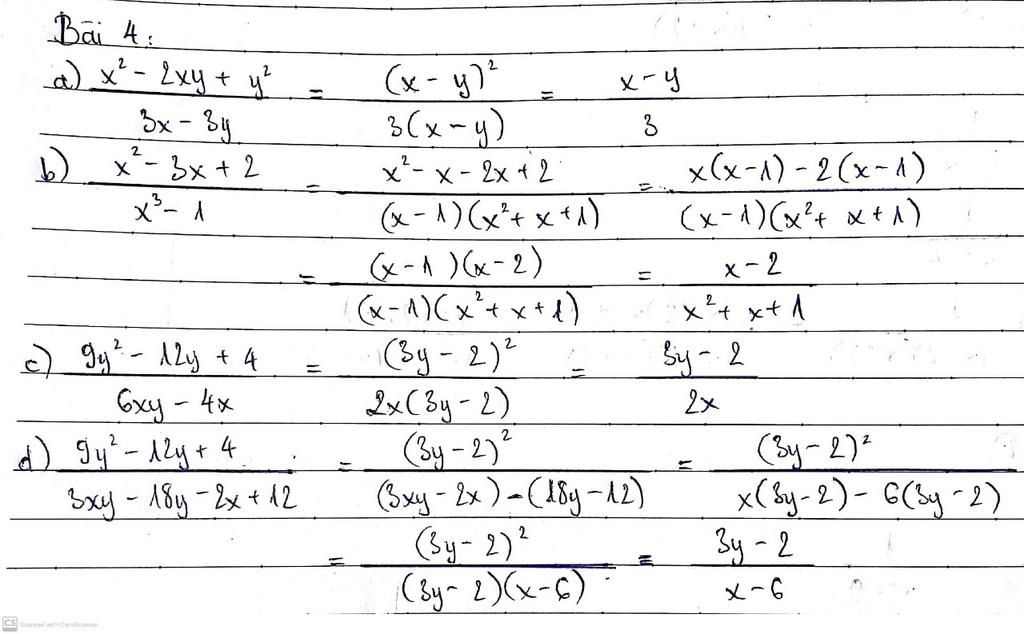 Bài 4:
a) x² - 2xy + y² / 3x - 3y = (x - y)² / 3(x - y) = x - y / 3
b) x² - 3x + 2 / x³ - 1 = x² - x - 2x + 2 / (x - 1)(x² + x + 1) = x(x - 1) - 2(x - 1) / (x - 1)(x² + x + 1)
= (x - 1)(x - 2) / (x - 1)(x² + x + 1) = x - 2 / x² + x + 1
c) 9y² - 12y + 4 / 6xy - 4x = (3y - 2)² / 2x(3y - 2) = 3y - 2 / 2x
d) 9y² - 12y + 4 / 3xy - 18y - 2x + 12 = (3y - 2)² / (3xy - 2x) - (18y - 12) = (3y - 2)² / x(3y - 2) - 6(3y - 2)
= (3y - 2)² / (3y - 2)(x - 6) = 3y - 2 / x - 6
CS Scanned with CamScanner